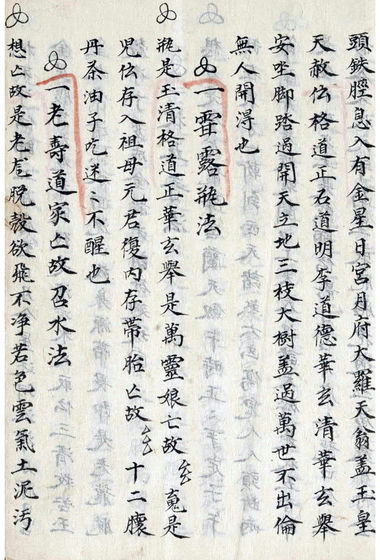 頭鉄脛急入有金星日宮月府大羅天翁盖玉皇
天赦伝格道正名道明李道德華玄清華玄舉
安坐脚踏過開天立地三枝大樹盖過萬世不出倫
無人開淂也
一霄露瓶法
瓶是玉清格道正華玄舉是萬靈娘亡故是
児伝存入祖母元君復内存帯胎亡故十二懷
丹茶油子吃迷〻不醒也
一老壽道家亡故召水法
想亡故是老虎脱殼欲飛不净若色雲氣土泥汚